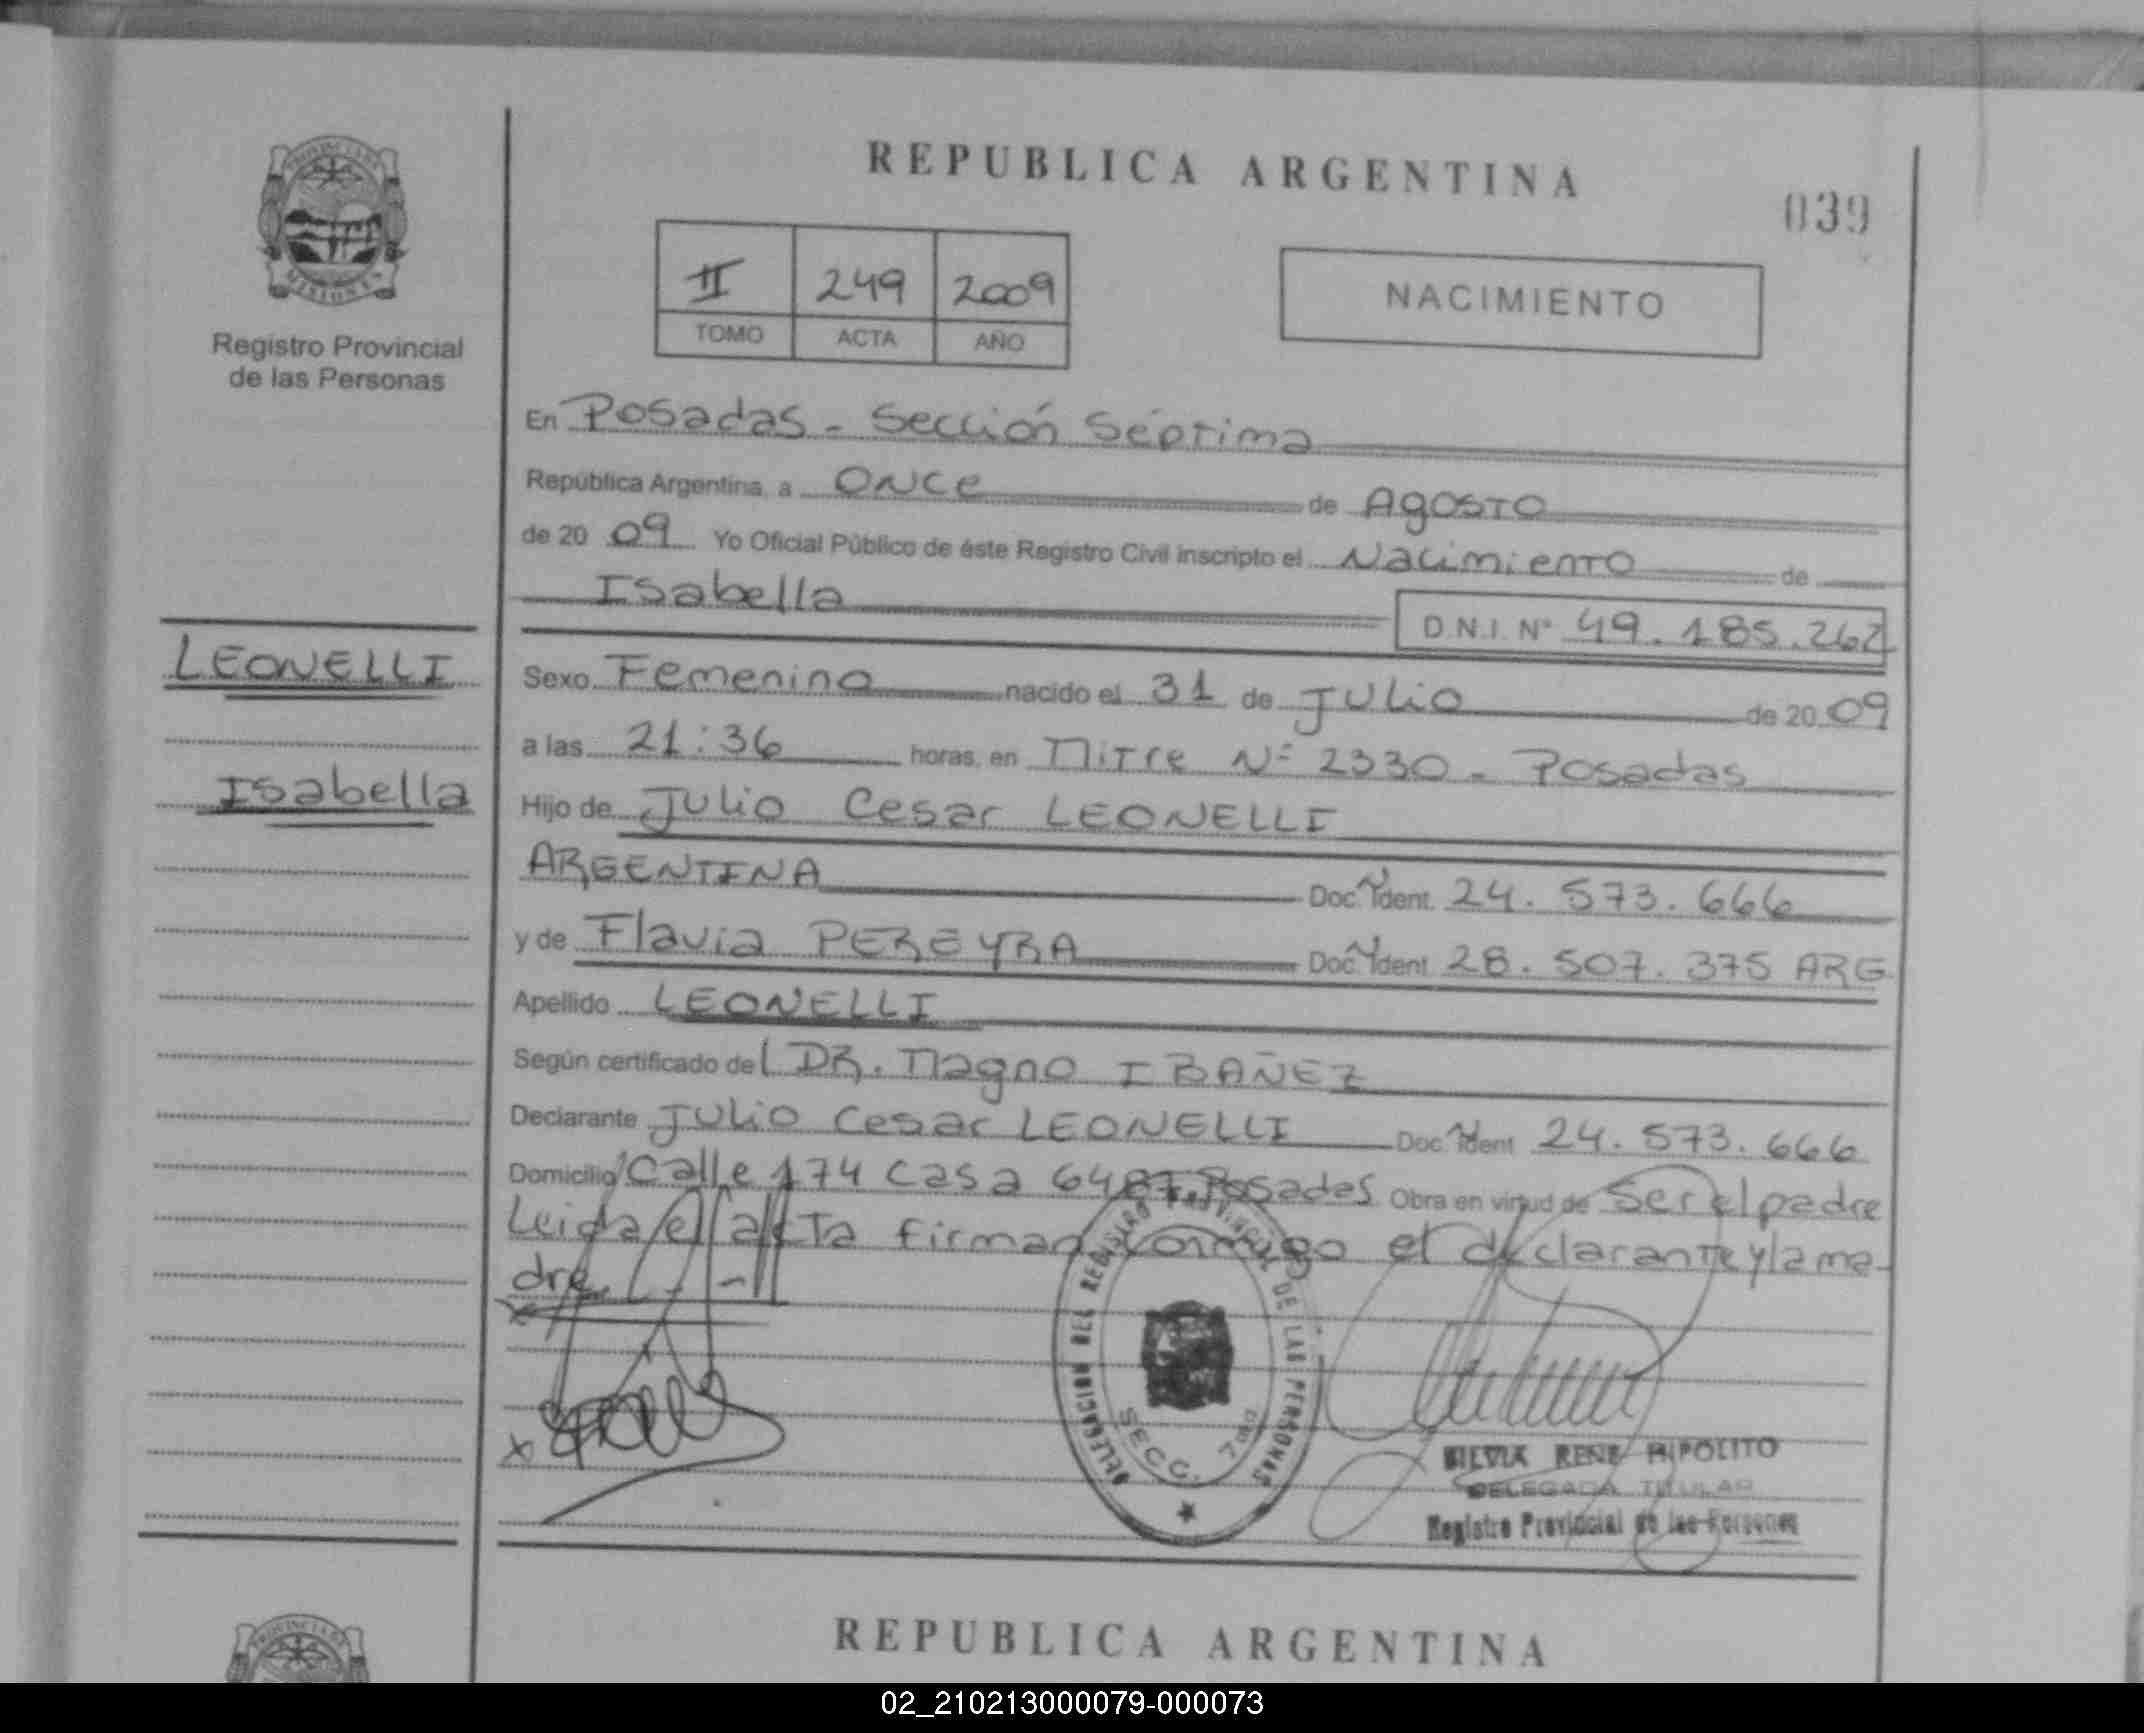 REPUBLICA ARGENTINA
039
II 249 2009
TOMO ACTA AÑO
NACIMIENTO
PROVINCIA DE MISIONES
Registro Provincial
de las Personas
En Posadas - Sección Séptima
República Argentina, a Once de Agosto
de 20 09 Yo Oficial Público de éste Registro Civil inscripto el Nacimiento de
Isabella D.N.I. Nº 49.185.262
LEONELLI
Isabella
Sexo Femenino nacido el 31 de Julio de 20 09
a las 21:36 horas, en Mitre Nº 2330 - Posadas
Hijo de Julio Cesar LEONELLI
ARGENTINA Doc. Ident. 24.573.666
y de Flavia PEREYRA Doc. Ident. 28.507.375 ARG
Apellido LEONELLI
Según certificado del DR. Magno IBAÑEZ
Declarante Julio Cesar LEONELLI Doc. Ident. 24.573.666
Domicilio Calle 174 Casa 6487, Posadas Obra en virtud de Ser el padre
Leida el acta firman conmigo el declarante y la ma-
dre
DELEGACION DEL REGISTRO PROVINCIAL DE LAS PERSONAS
SECC. 7ma
SILVIA RENE HIPOLITO
DELEGADA TITULAR
Registro Provincial de las Personas
REPUBLICA ARGENTINA
02_210213000079-000073